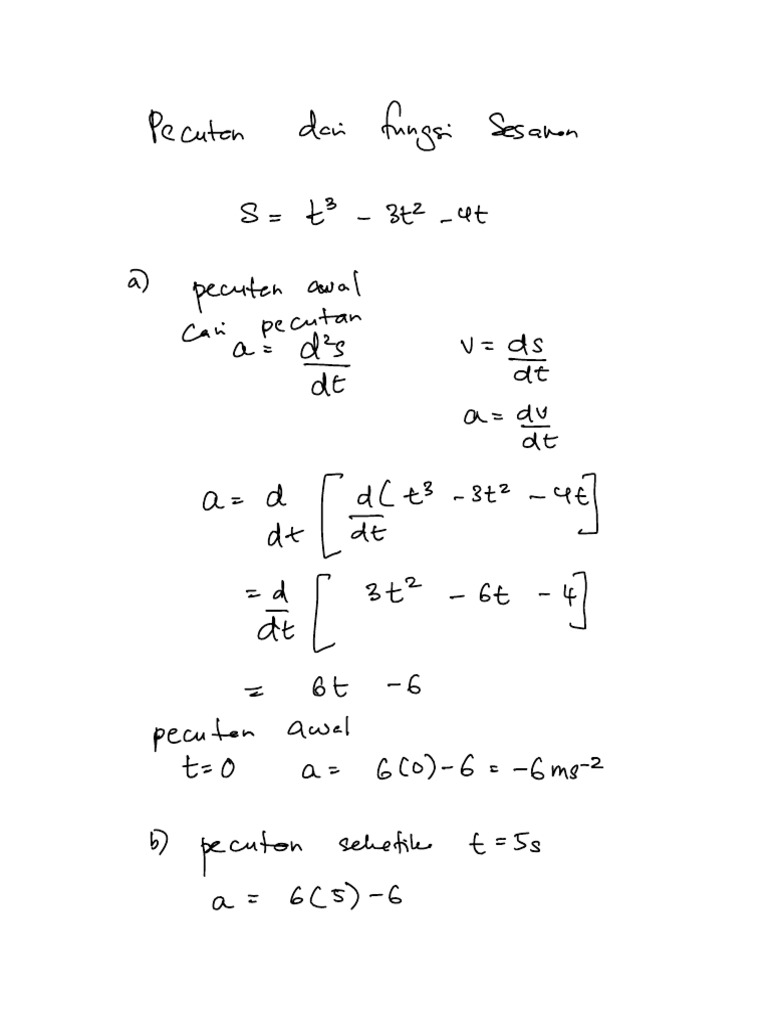 Pecutan dari fungsi Sesaran
S = t³ - 3t² - 4t
a) pecutan awal
Cari pecutan
a = d²s/dt v = ds/dt
a = dv/dt
a = d/dt [ d/dt ( t³ - 3t² - 4t ]
= d/dt [ 3t² - 6t - 4 ]
= 6t - 6
pecutan awal
t=0 a = 6(0)-6 = -6ms⁻²
b) pecutan seketika t = 5s
a = 6(5)-6